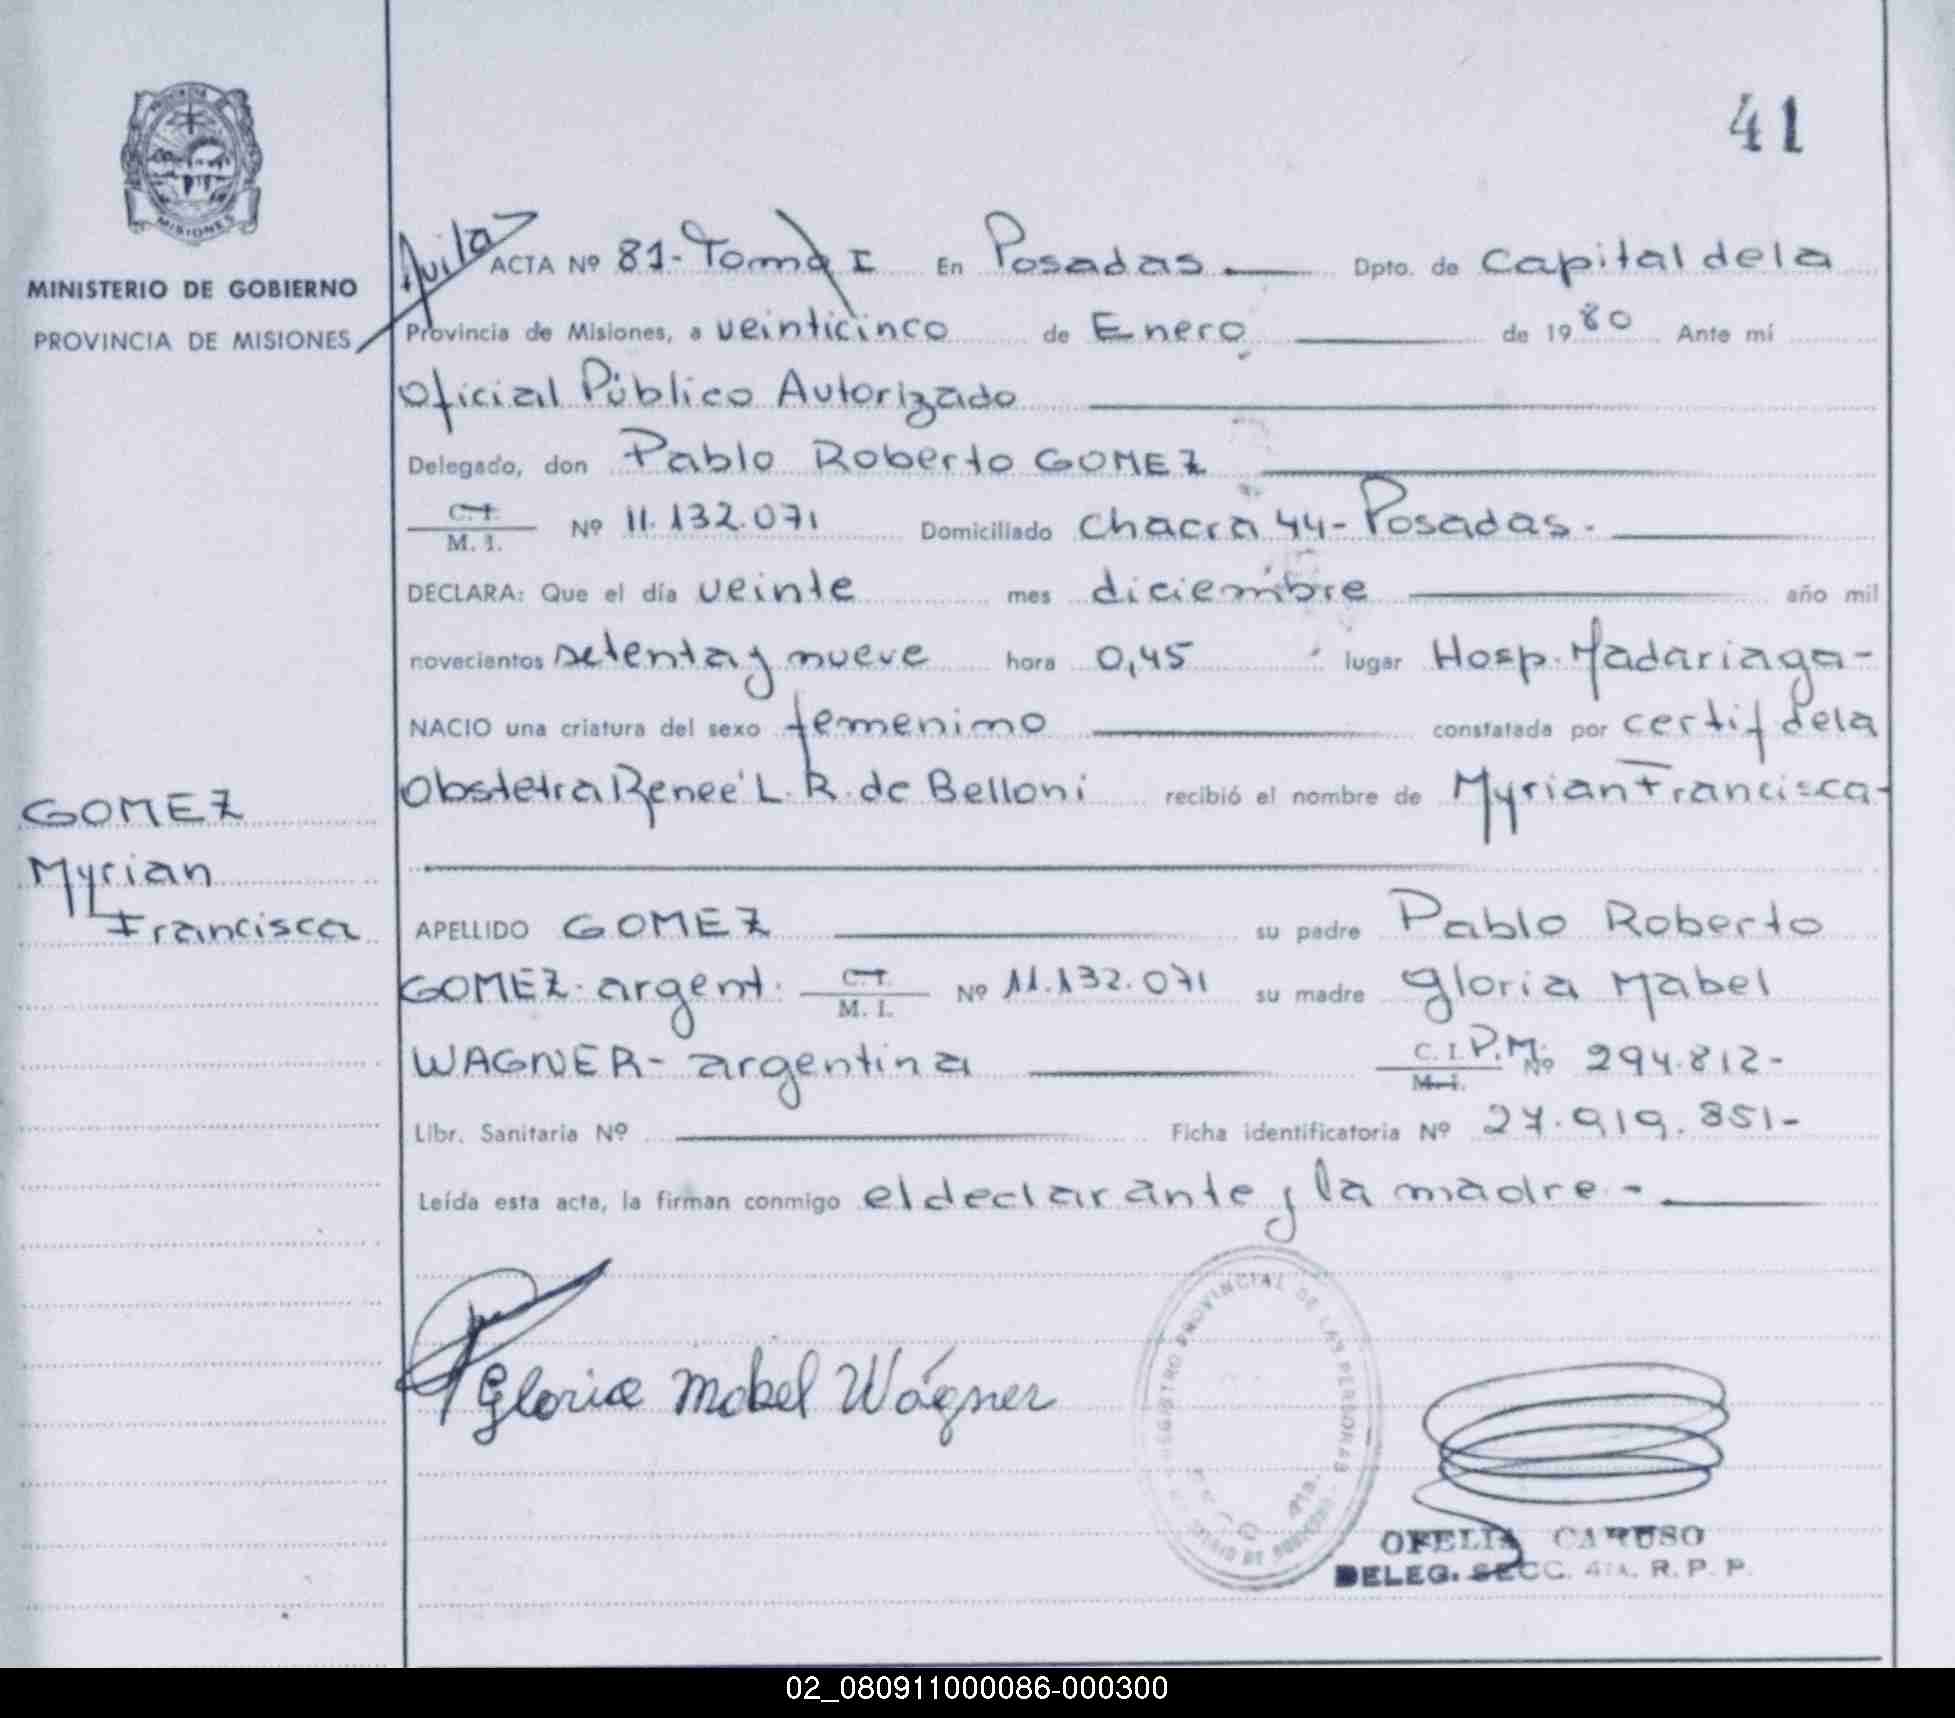 41
PROVINCIA
MISIONES
MINISTERIO DE GOBIERNO
PROVINCIA DE MISIONES
ACTA Nº 81- Tomo I En Posadas Dpto. de Capital de la
Provincia de Misiones, a veinticinco de Enero de 1980 Ante mí
Oficial Público Autorizado
Delegado, don Pablo Roberto GOMEZ
C. I.
M. I. Nº 11.132.071 Domiciliado Chacra 44- Posadas.
DECLARA: Que el día veinte mes diciembre año mil
novecientos setenta y nueve hora 0,45 lugar Hosp. Madariaga-
NACIO una criatura del sexo femenino constatada por certif de la
Obstetra Reneé L. R. de Belloni recibió el nombre de Myrian Francisca-
GOMEZ
Myrian
Francisca
APELLIDO GOMEZ su padre Pablo Roberto
GOMEZ. argent. C. I.
M. I. Nº 11.132.071 su madre Gloria Mabel
WAGNER- argentina C. I. P.M.
M. I. Nº 294.812-
Libr. Sanitaria Nº Ficha identificatoria Nº 27.919.851-
Leída esta acta, la firman conmigo el declarante y la madre.-
Gloria Mabel Wágner
REGISTRO PROVINCIAL DE LAS PERSONAS
OFELIA CARUSO
DELEG. SECC. 4ta. R. P. P.
02_080911000086-000300